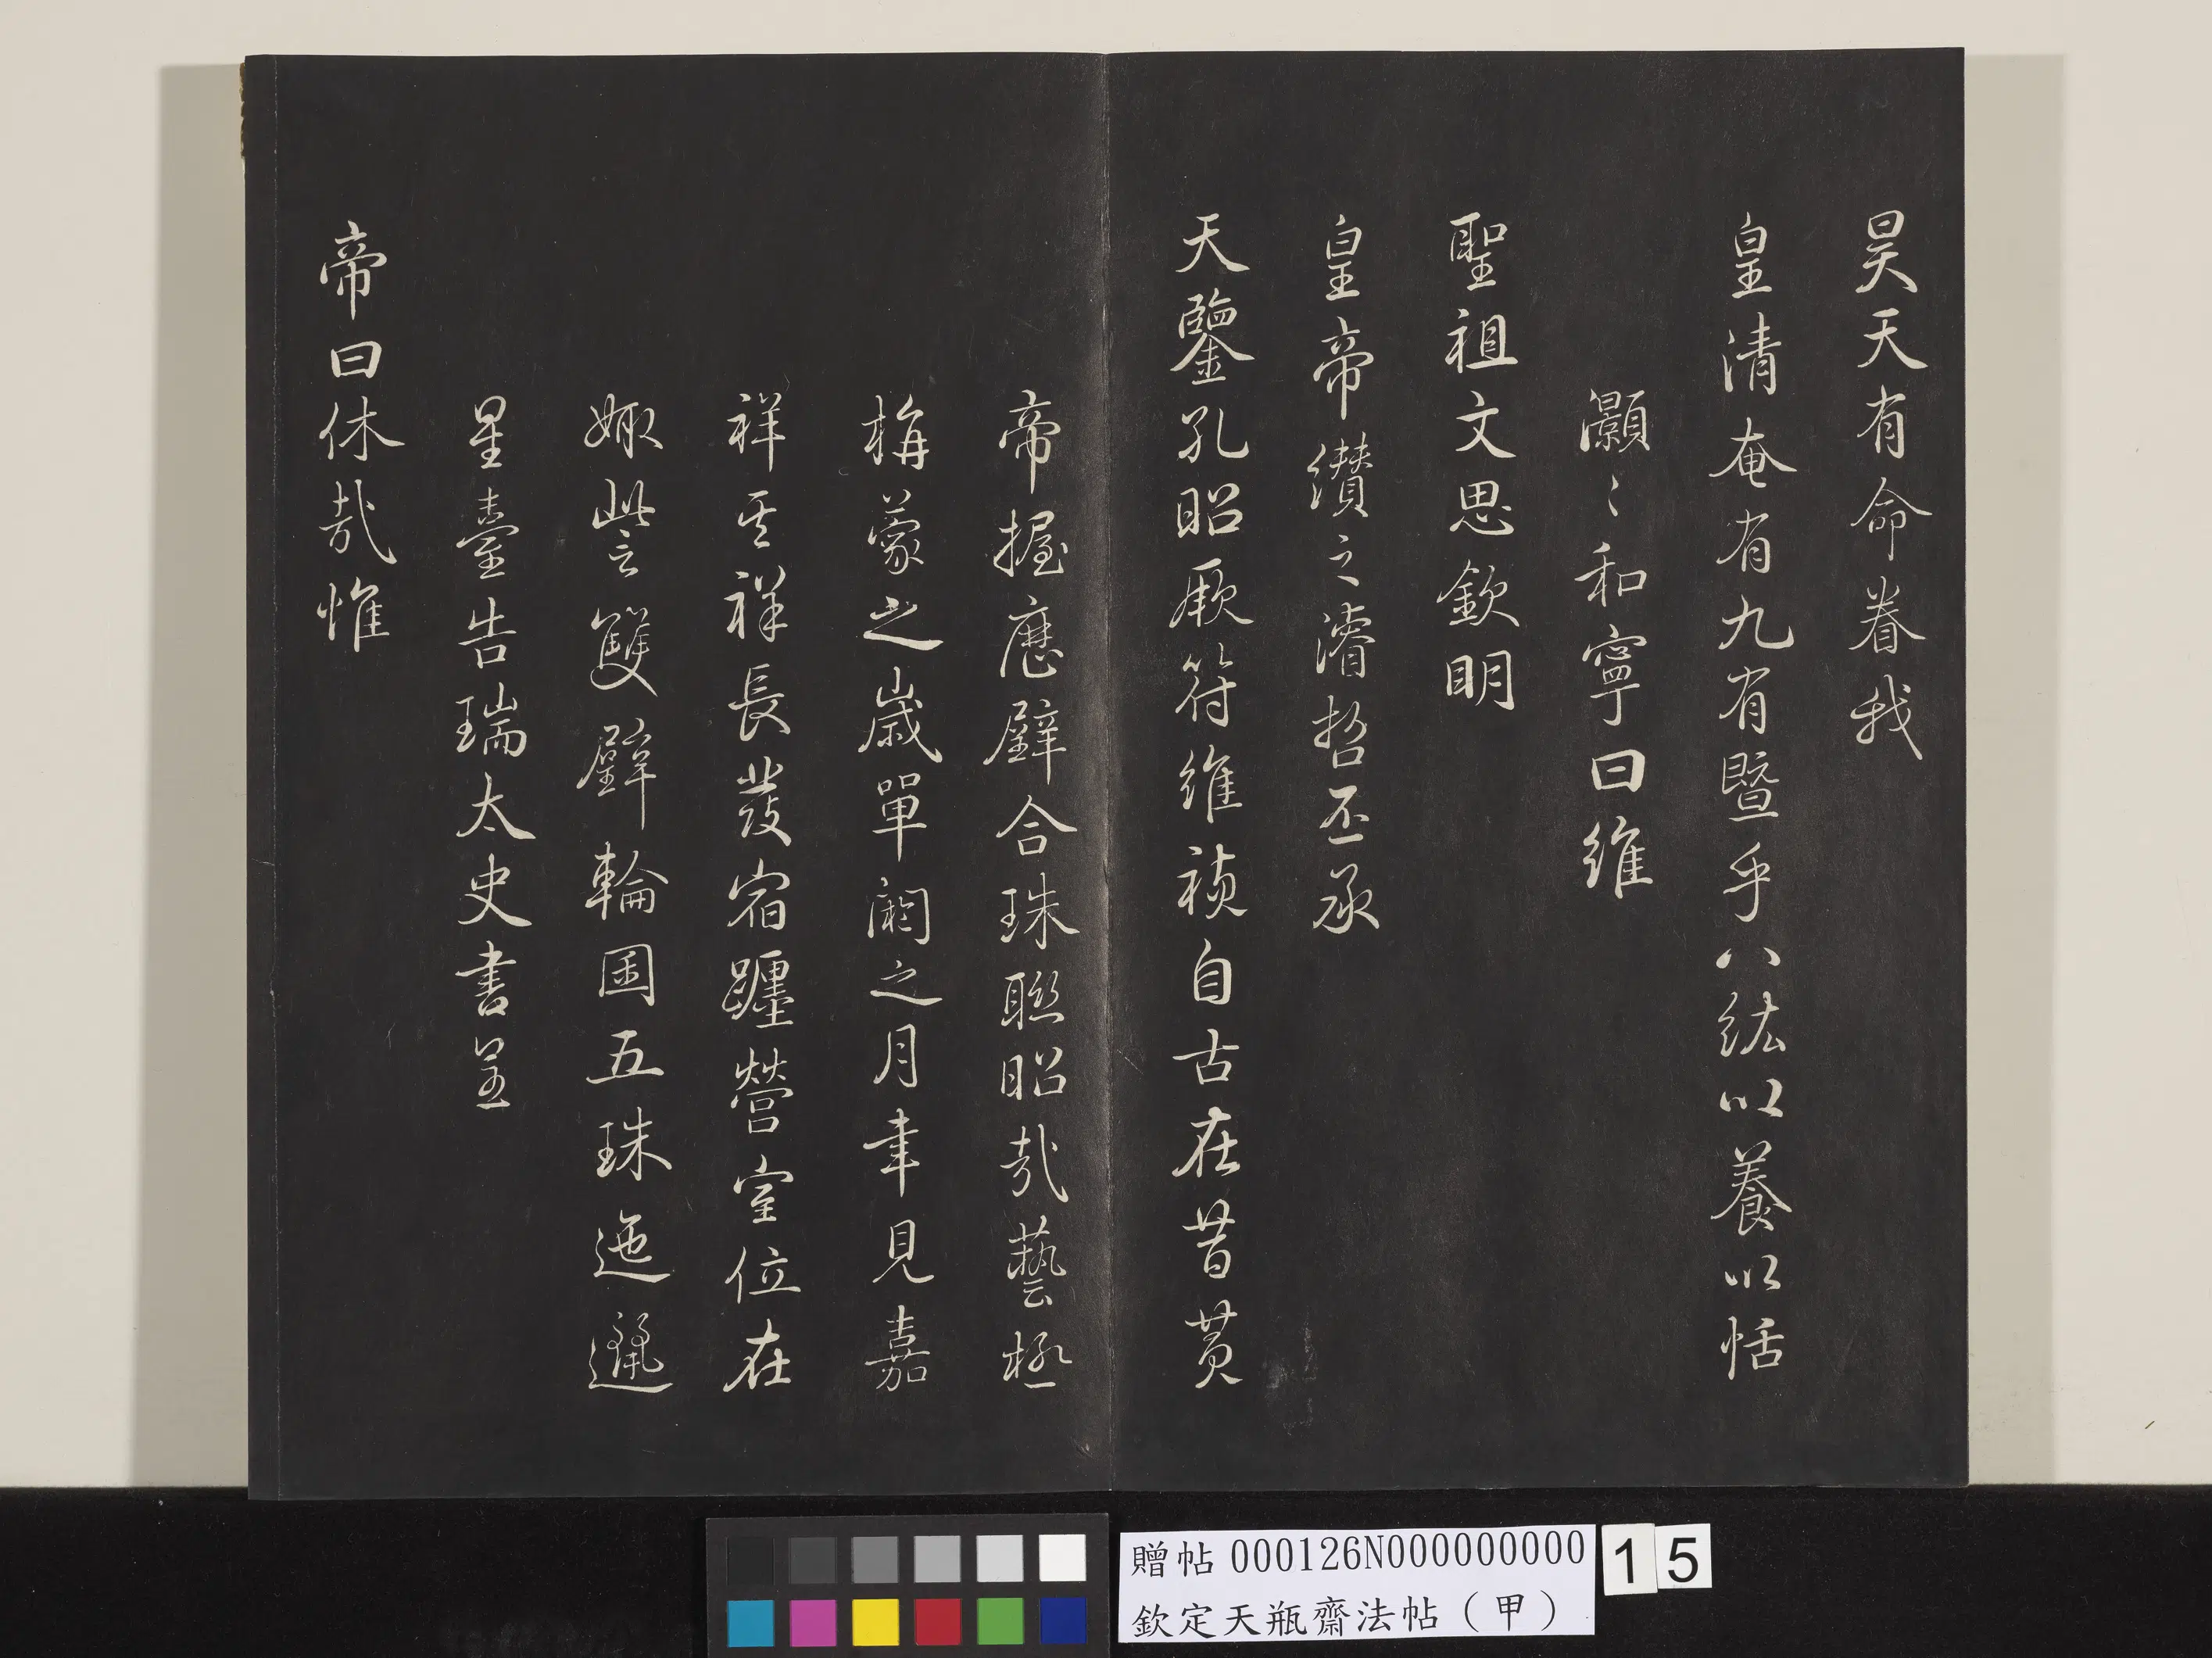 昊天有命眷我
皇清奄有九有暨乎八紘以養以恬
灝〻和寧曰維
聖祖文思欽明
皇帝纘之濬哲丕承
天鑒孔昭厥符維禎自古在昔莫
帝握曆璧合珠聯昭哉藝極
旃蒙之歲單閼之月聿見嘉
祥其祥長發宿躔營室位在
娵訾雙璧輪囷五珠迤邐
星臺告瑞太史書呈
帝曰休哉惟
贈帖 000126N000000000
欽定天瓶齋法帖（甲）
15